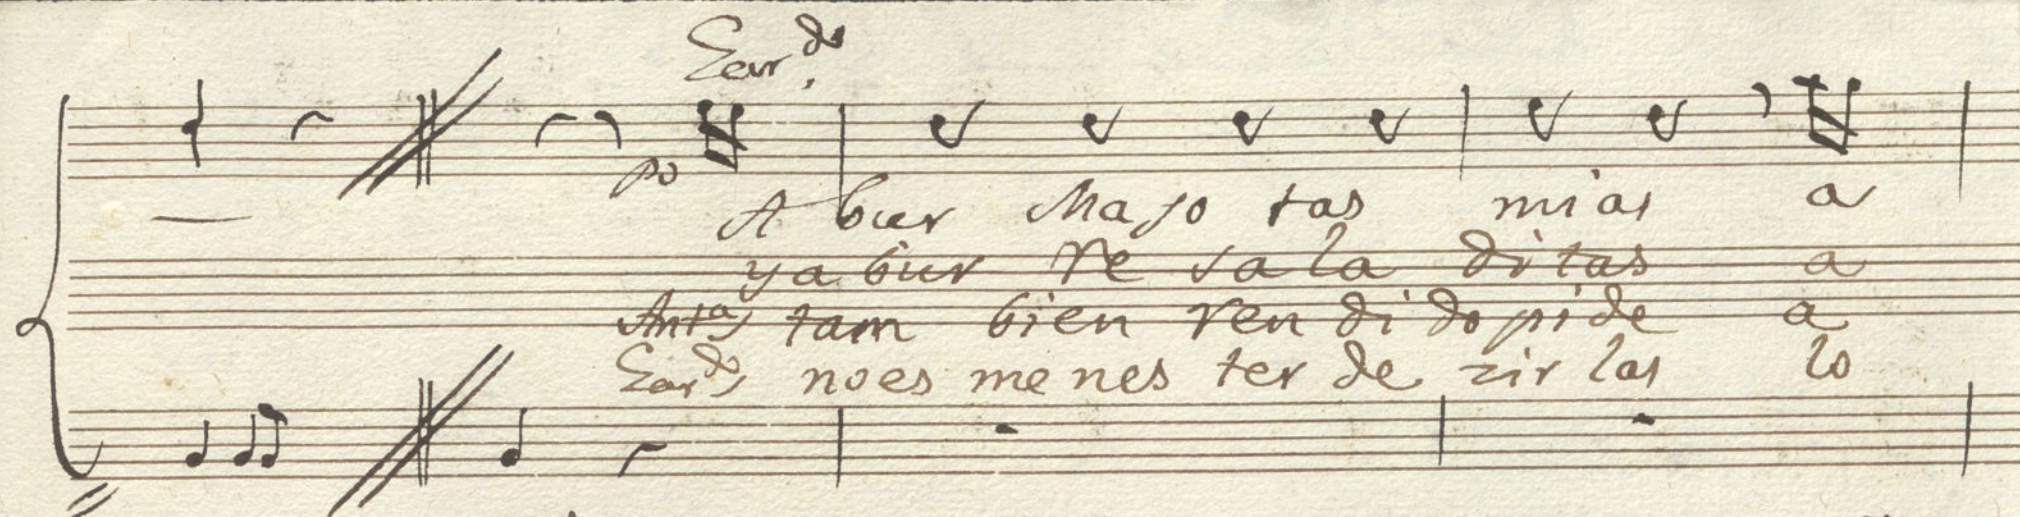 Eduar.do
po
A bur Majo tas mias a
y a bur re sa la ditas a
Anta, tam bien ren di do pide a
no es me nes ter de zir las lo